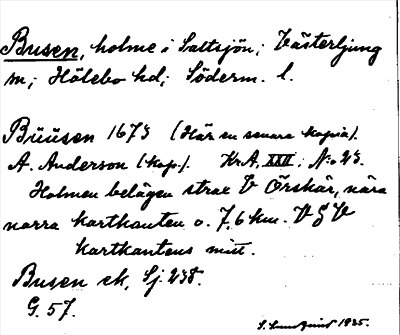 Busen, holme i Saltsjön; Västerljung
sn; Hölebo hd; Söderm. l.
Büüsen 1673 (Här en senare kopia).
A. Anderson (kop.). KrA, XXII, No 23.
Holmen belägen strax V Örskär, nära
norra kartkanten o. 7,6 km. V S V
kartkantens mitt.
Busen ek, Sj. 238.
G. 57.
S. Lundquist 1935.